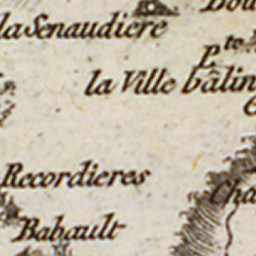 la Senaudiere
P.te
la Ville bâlin
Recordieres
Cha
Babault